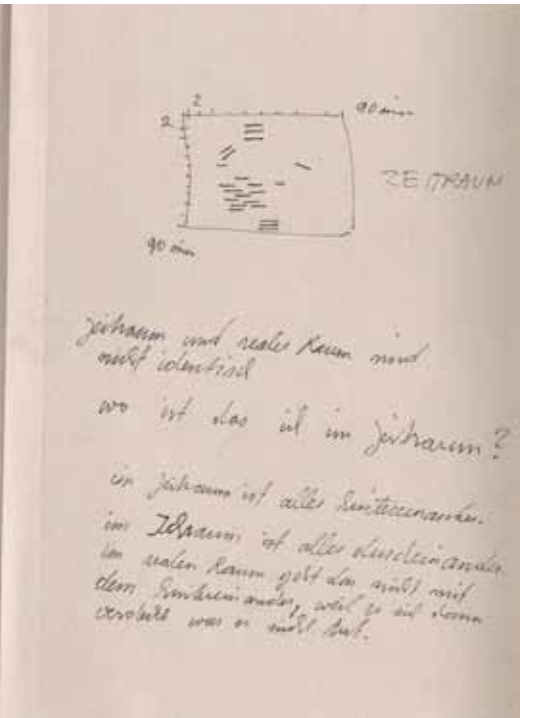 2
2
90 min
ZEITRAUM
90 min
zeitraum und realer Raum sind
nicht identisch
wo ist das ich im zeitraum?
im zeitraum ist alles hintereinander.
im Ichraum ist alles durcheinander
im realen Raum geht das nicht mit
dem hintereinander, weil es sich dann
verdeckt was es nicht tut.